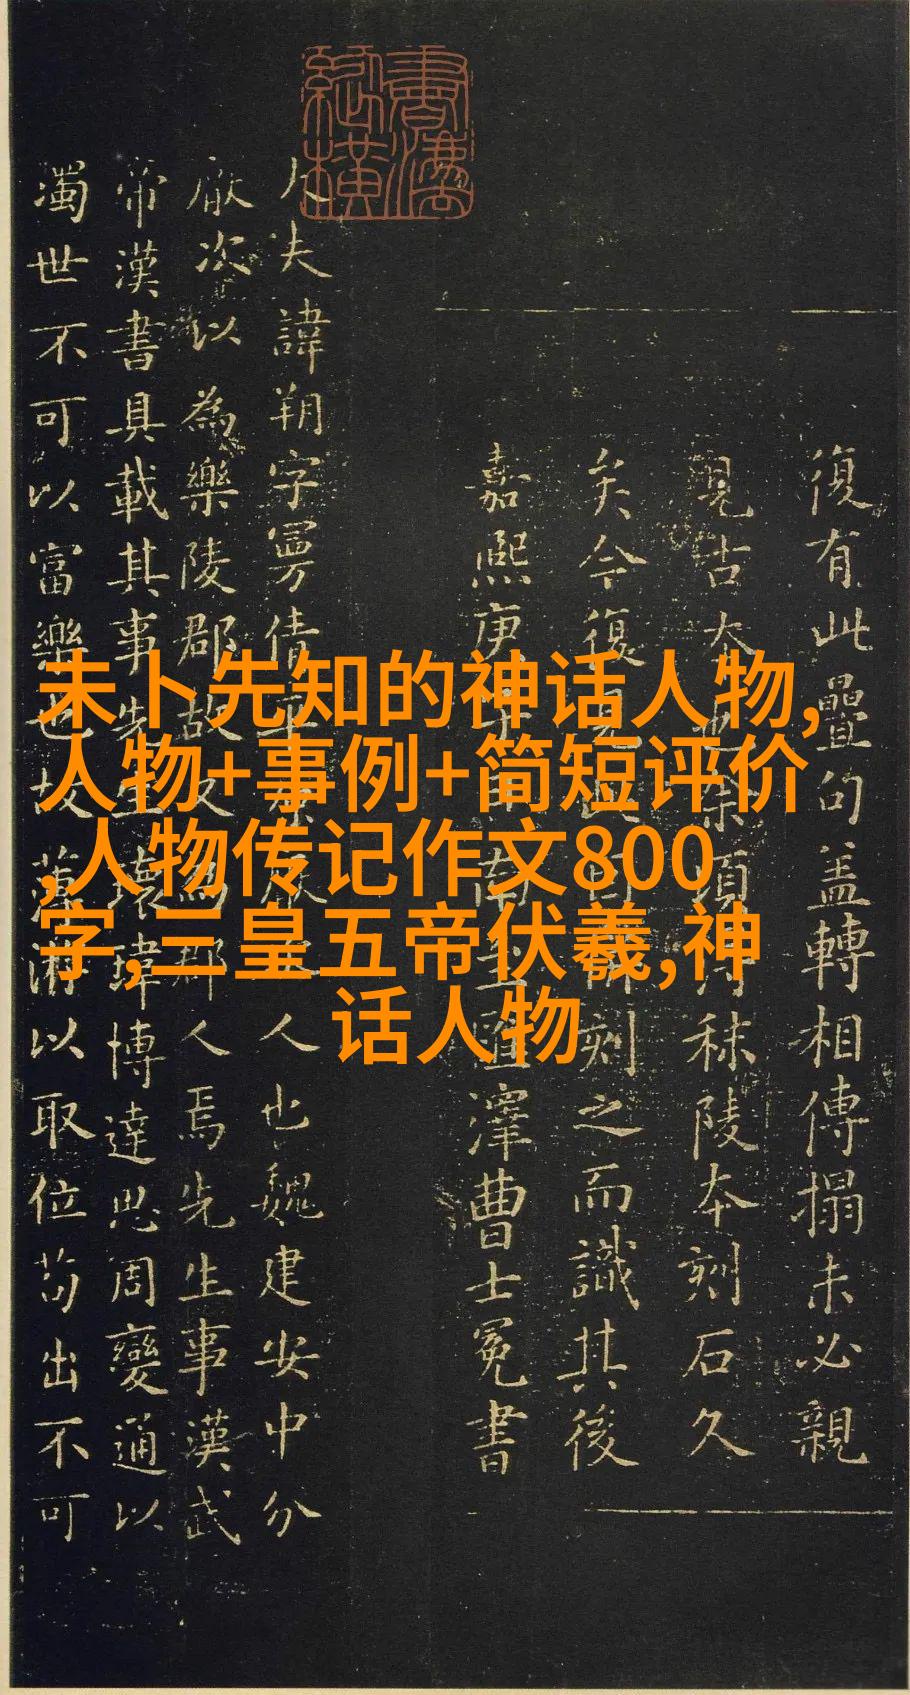 書灋
縱橫
未卜先知的神话人物,
人物+事例+简短评价
,人物传记作文800
字,三皇五帝伏羲,神
话人物
復有此疊句盖轉相傳搨未必親
見古本也余頃得秣陵本刻石久
矣今復見刻之而識其後
嘉熙庚澤曹士冕書
大夫諱朔字曼倩平原厭次人也魏建安中分
厭次以為樂陵郡故又為郡人焉先生事漢武
帝漢書具載其事先生瓌瑋博達思周變通以
濁世不可以富樂也故薄游以取位苟出不可